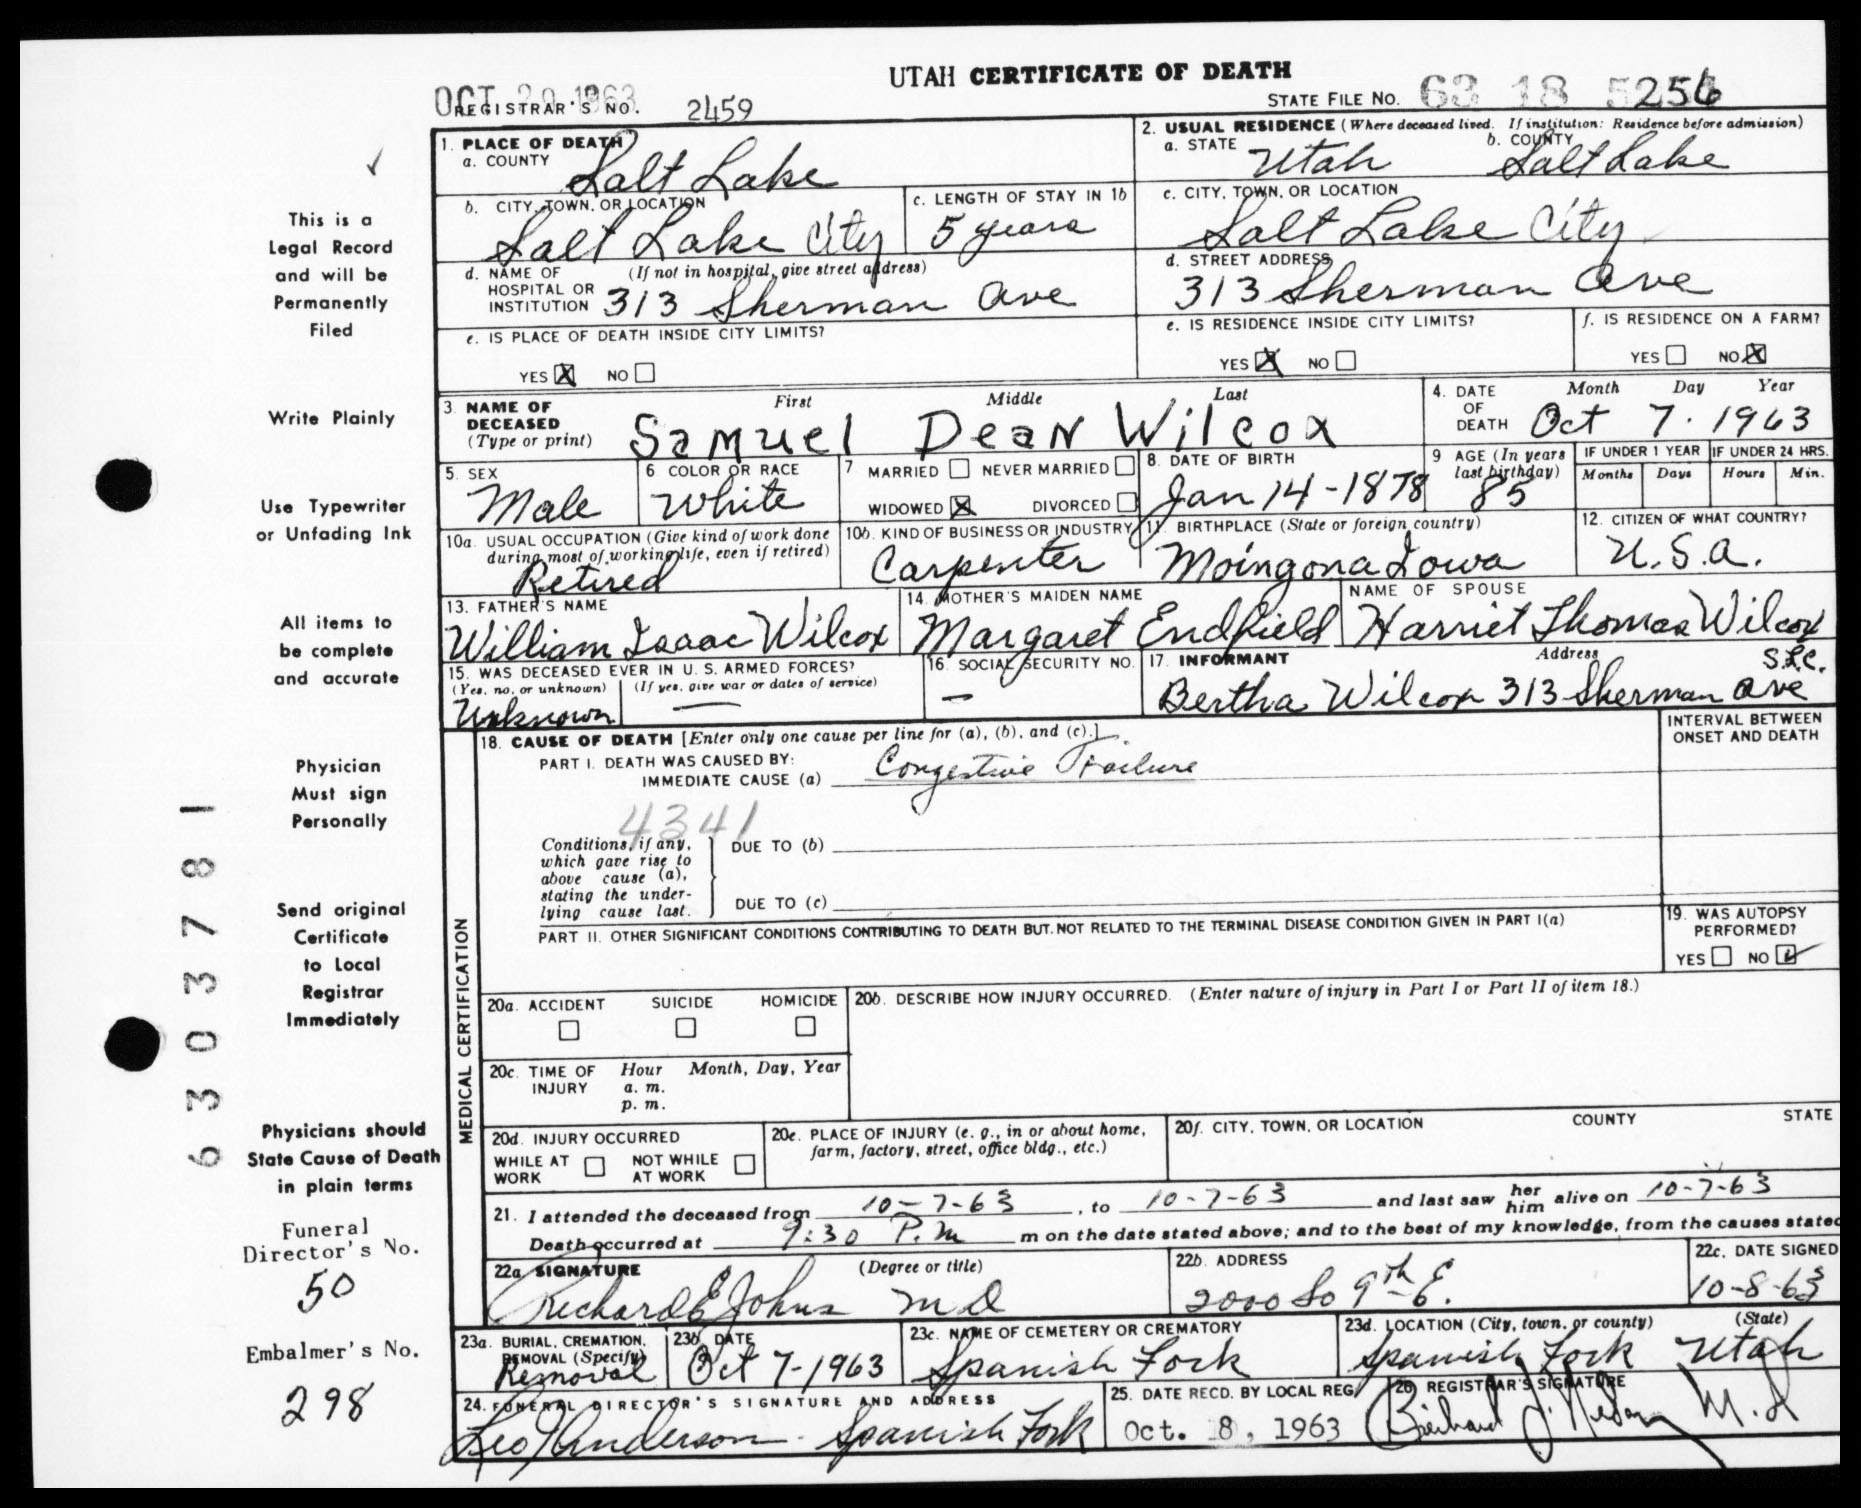 UTAH CERTIFICATE OF DEATH
OCT 29 1963
REGISTRAR'S NO. 2459
STATE FILE NO. 63 18 5256
1. PLACE OF DEATH
a. COUNTY Salt Lake
b. CITY, TOWN, OR LOCATION Salt Lake City
c. LENGTH OF STAY IN 1b 5 years
d. NAME OF HOSPITAL OR INSTITUTION (If not in hospital, give street address) 313 Sherman Ave
e. IS PLACE OF DEATH INSIDE CITY LIMITS?
YES X NO
2. USUAL RESIDENCE (Where deceased lived. If institution: Residence before admission)
a. STATE Utah b. COUNTY Salt Lake
c. CITY, TOWN, OR LOCATION Salt Lake City
d. STREET ADDRESS 313 Sherman Ave
e. IS RESIDENCE INSIDE CITY LIMITS?
YES X NO
f. IS RESIDENCE ON A FARM?
YES NO X
3. NAME OF DECEASED (Type or print) First Middle Last
Samuel Dean Wilcox
4. DATE OF DEATH Month Day Year
Oct 7. 1963
5. SEX Male
6 COLOR OR RACE White
7 MARRIED NEVER MARRIED
WIDOWED X DIVORCED
8. DATE OF BIRTH Jan 14-1878
9 AGE (In years last birthday) 85
IF UNDER 1 YEAR Months Days
IF UNDER 24 HRS. Hours Min.
10a. USUAL OCCUPATION (Give kind of work done during most of working life, even if retired) Retired
10b. KIND OF BUSINESS OR INDUSTRY Carpenter
11. BIRTHPLACE (State or foreign country) Moingona Iowa
12. CITIZEN OF WHAT COUNTRY? U.S.A.
13. FATHER'S NAME William Isaac Wilcox
14. MOTHER'S MAIDEN NAME Margaret Endfield
NAME OF SPOUSE Harriet Thomas Wilcox
15. WAS DECEASED EVER IN U. S. ARMED FORCES?
(Yes, no, or unknown) (If yes, give war or dates of service)
Unknown —
16. SOCIAL SECURITY NO. —
17. INFORMANT Address S.L.C.
Bertha Wilcox 313 Sherman Ave
MEDICAL CERTIFICATION
18. CAUSE OF DEATH [Enter only one cause per line for (a), (b), and (c).]
INTERVAL BETWEEN ONSET AND DEATH
PART I. DEATH WAS CAUSED BY:
IMMEDIATE CAUSE (a) Congestive Failure
4341
Conditions, if any, which gave rise to above cause (a), stating the under-lying cause last.
DUE TO (b)
DUE TO (c)
PART II. OTHER SIGNIFICANT CONDITIONS CONTRIBUTING TO DEATH BUT NOT RELATED TO THE TERMINAL DISEASE CONDITION GIVEN IN PART I(a)
19. WAS AUTOPSY PERFORMED?
YES NO ✓
20a. ACCIDENT SUICIDE HOMICIDE
20b. DESCRIBE HOW INJURY OCCURRED. (Enter nature of injury in Part I or Part II of item 18.)
20c. TIME OF INJURY Hour a. m. p. m. Month, Day, Year
20d. INJURY OCCURRED
WHILE AT WORK NOT WHILE AT WORK
20e. PLACE OF INJURY (e. g., in or about home, farm, factory, street, office bldg., etc.)
20f. CITY, TOWN, OR LOCATION COUNTY STATE
21. I attended the deceased from 10-7-63, to 10-7-63 and last saw her him alive on 10-7-63
Death occurred at 9:30 P.m m on the date stated above; and to the best of my knowledge, from the causes stated
22a. SIGNATURE (Degree or title) Richard E Johns MD
22b. ADDRESS 2000 So 9th E.
22c. DATE SIGNED 10-8-63
23a. BURIAL, CREMATION, REMOVAL (Specify) Removal
23b. DATE Oct 7-1963
23c. NAME OF CEMETERY OR CREMATORY Spanish Fork
23d. LOCATION (City, town, or county) (State) Spanish Fork Utah
24. FUNERAL DIRECTOR'S SIGNATURE AND ADDRESS
Leo Anderson - Spanish Fork
25. DATE RECD. BY LOCAL REG. Oct. 8, 1963
26. REGISTRAR'S SIGNATURE M.D
✓
This is a
Legal Record
and will be
Permanently
Filed
Write Plainly
Use Typewriter
or Unfading Ink
All items to
be complete
and accurate
Physician
Must sign
Personally
Send original
Certificate
to Local
Registrar
Immediately
Physicians should
State Cause of Death
in plain terms
Funeral
Director's No.
50
Embalmer's No.
298
6303781